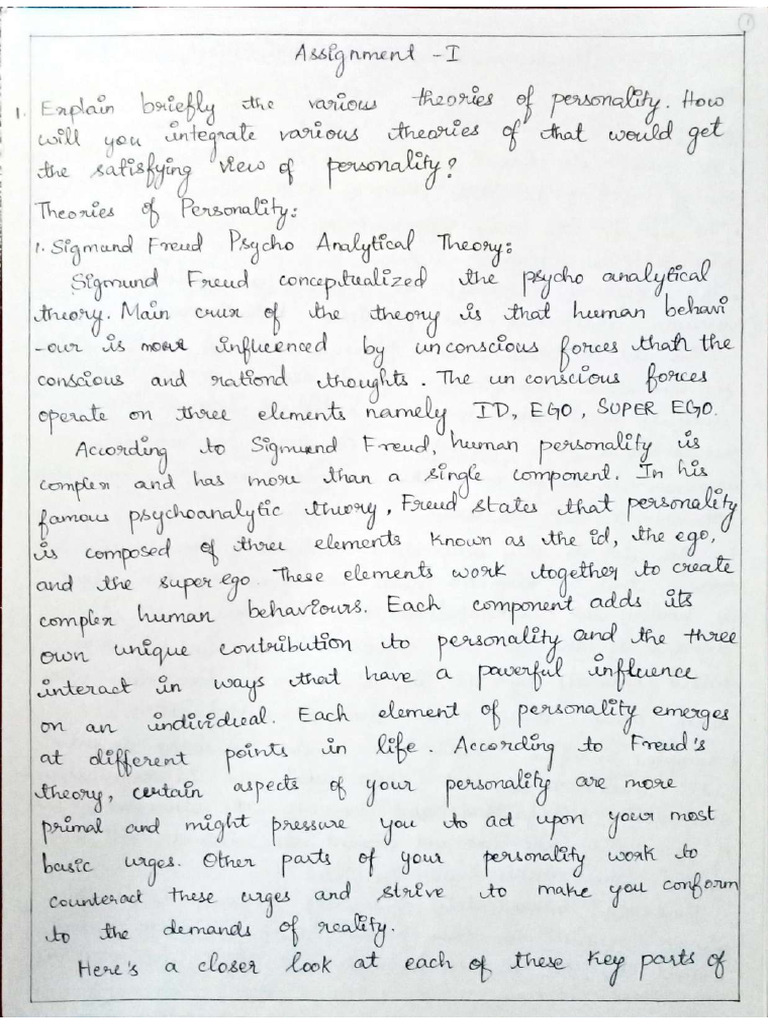 1
Assignment - I
1. Explain briefly the various theories of personality. How
will you integrate various theories of that would get
the satisfying view of personality?
Theories of Personality:
1. Sigmund Freud Psycho Analytical Theory:
Sigmund Freud conceptualized the psycho analytical
theory. Main crux of the theory is that human behavi
-our is more influenced by unconscious forces than the
conscious and rationd thoughts. The un conscious forces
operate on three elements namely ID, EGO, SUPER EGO.
According to Sigmund Freud, human personality is
complex and has more than a single component. In his
famous psychoanalytic theory, Freud states that personality
is composed of three elements known as the id, the ego,
and the super ego. These elements work together to create
complex human behaviours. Each component adds its
own unique contribution to personality and the three
interact in ways that have a powerful influence
on an individual. Each element of personality emerges
at different points in life. According to Freud's
theory, certain aspects of your personality are more
primal and might pressure you to act upon your most
basic urges. Other parts of your personality work to
counteract these urges and strive to make you conform
to the demands of reality.
Here's a closer look at each of these key parts of